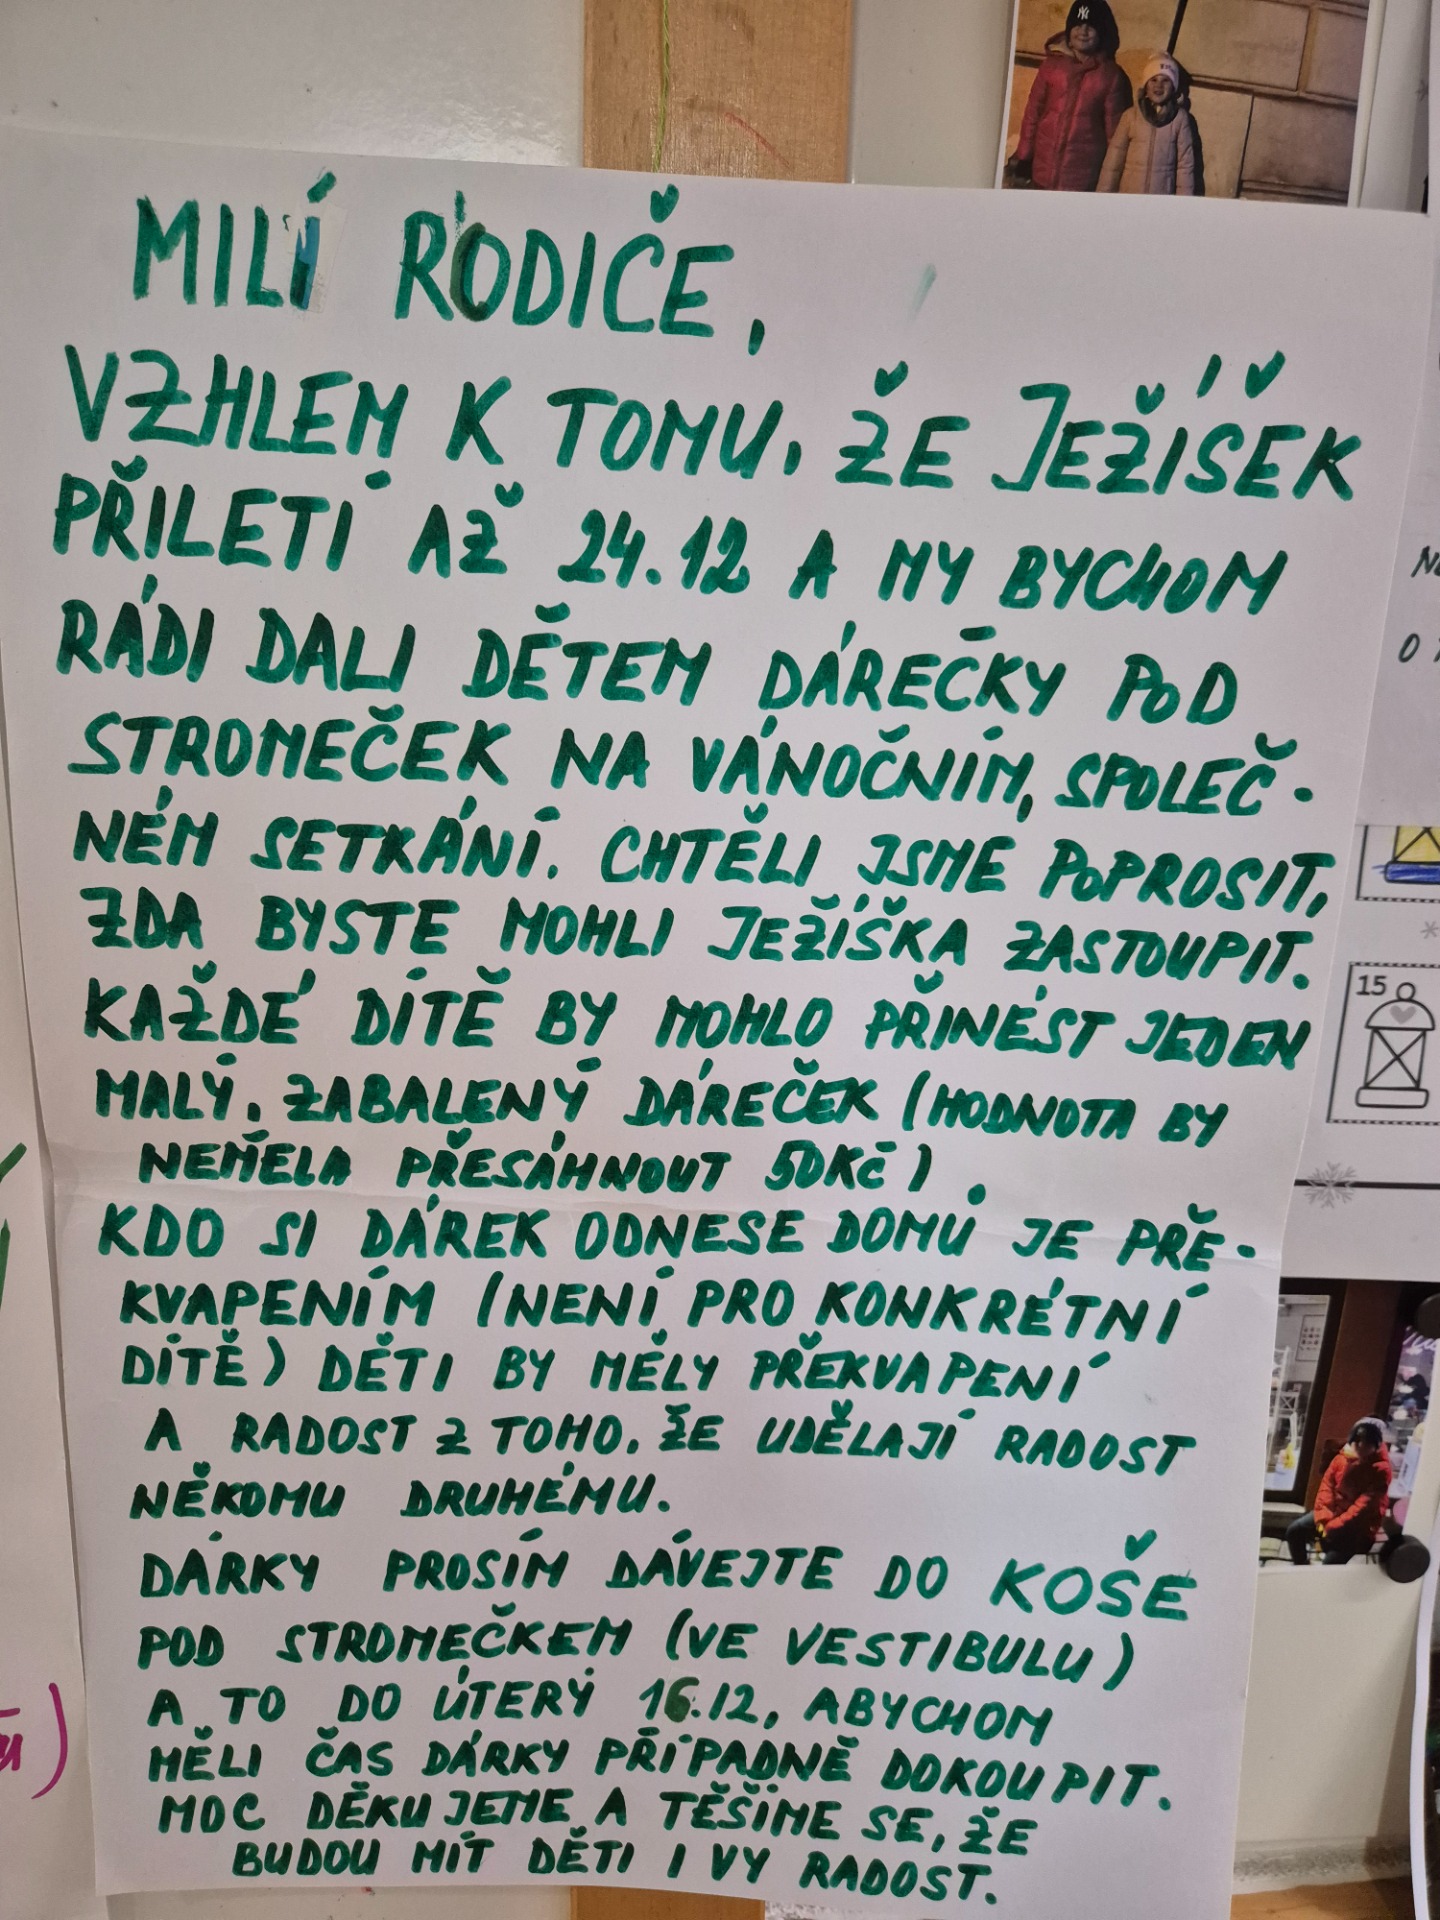 MILÍ RODIČE,
VZHLEM K TOMU, ŽE JEŽÍŠEK
PŘILETÍ AŽ 24.12 A MY BYCHOM
RÁDI DALI DĚTEM DÁREČKY POD
STROMEČEK NA VÁNOČNÍM, SPOLEČ-
NÉM SETKÁNÍ. CHTĚLI JSME POPROSIT,
ZDA BYSTE MOHLI JEŽÍŠKA ZASTOUPIT.
KAŽDÉ DÍTĚ BY MOHLO PŘINÉST JEDEN
MALÝ, ZABALENÝ DÁREČEK (HODNOTA BY
NEMĚLA PŘESÁHNOUT 50KČ).
KDO SI DÁREK ODNESE DOMŮ JE PŘE-
KVAPENÍM (NENÍ PRO KONKRÉTNÍ
DÍTĚ) DĚTI BY MĚLY PŘEKVAPENÍ
A RADOST Z TOHO, ŽE UDĚLAJÍ RADOST
NĚKOMU DRUHÉMU.
DÁRKY PROSÍM DÁVEJTE DO KOŠE
POD STROMEČKEM (VE VESTIBULU)
A TO DO ÚTERÝ 16.12, ABYCHOM
MĚLI ČAS DÁRKY PŘÍPADNĚ DOKOUPIT.
MOC DĚKUJEME A TĚŠÍME SE, ŽE
BUDOU MÍT DĚTI I VY RADOST.
15